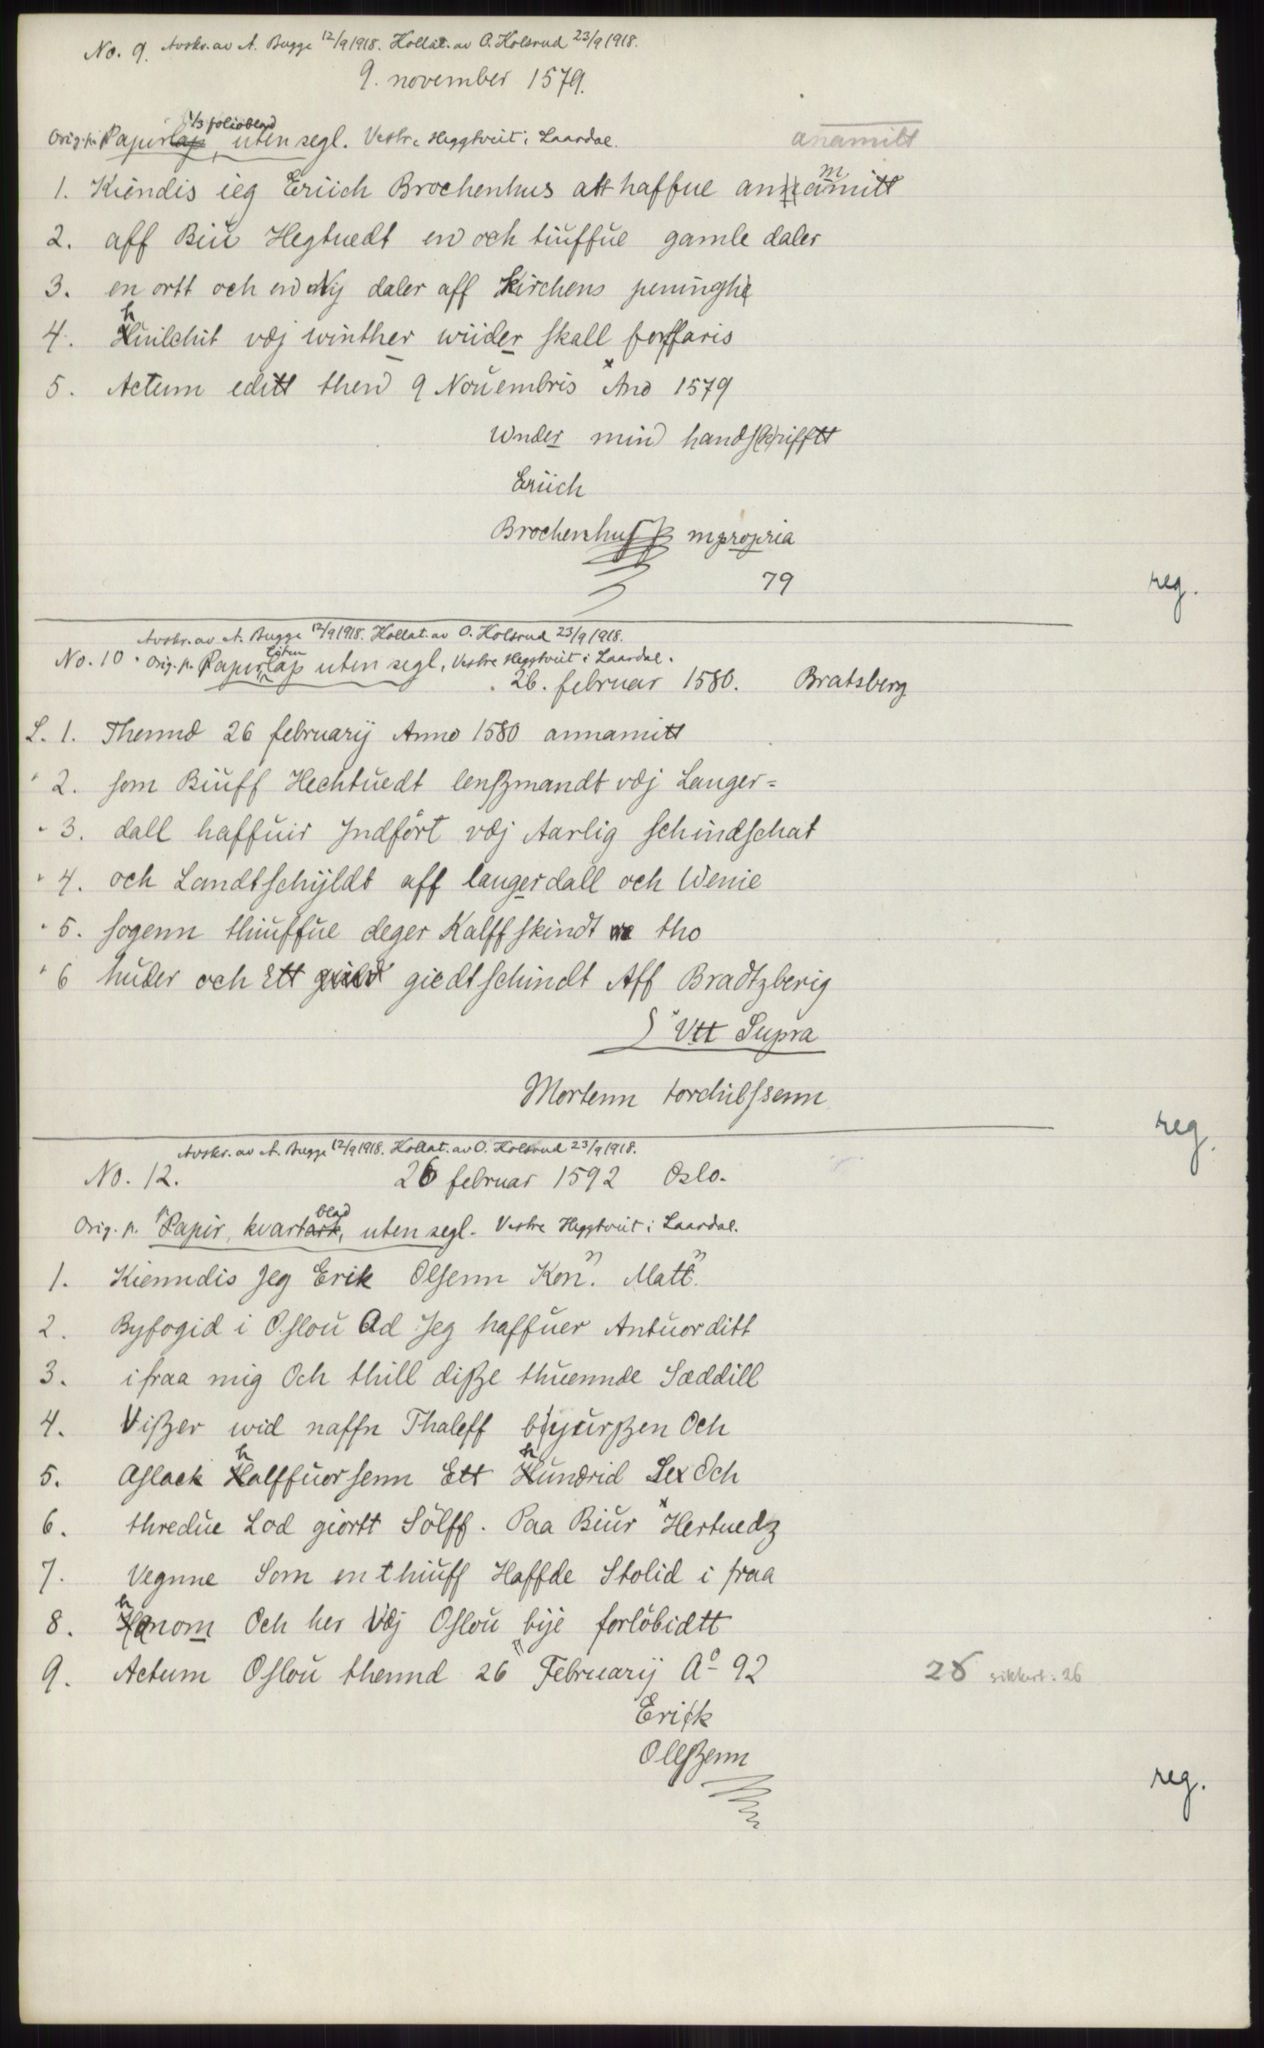 No. 9. Avskr. av A. Bugge 12/9 1918. Kollat. av O. Kolsrud 23/9 1918.
9. november 1579.
Orig. p. Papirlap 1/3 folioblad, uten segl. Vestre Heggtveit i Laardal. anamitt
1. Kiendis ieg Eriich Brochenhus att haffue anammitt
2. aff Biů Hegtuedt en och tiůffue gamle daler
3. en ortt och en Ny daler aff kirchens peninghe
4. huilchit vdj winther wiider skall forfaris
5. Actum editt then 9 Nouembris Ano 1579
Wnder min handskrifftt
Eriich
Brochenhuss mpropria
79
reg.
Avskr. av A. Bugge 12/9 1918. Kollat. av O. Kolsrud 23/9 1918.
No. 10. Orig. p. Papirlap uten segl, Vestre Heggtveit i Laardal.
26. februar 1580. Bratsberg
L. 1. Thennd 26 februarij Anno 1580 annamitt
" 2. som Biůff Hechtuedt lenßmandt vdj Langer=
" 3. dall haffuir Jndfört vdj Aarlig schindschat
" 4. och Landtschijldt aff langerdall och Wenie
" 5. sogenn thiuffue deger Kalffskindt tho
" 6 huder och Ett giedtschindt Aff Bradtzberig
Vtt Supra
Mortenn tordhilssenn
reg.
Avskr. av A. Bugge 12/9 1918. Kollat. av O. Kolsrud 23/9 1918.
No. 12. 26 februar 1592 Oslo.
Orig. p. Papir, kvartblad, uten segl. Vestre Heggtveit i Laardal.
1. Kienndis Jeg Erik Olsenn Kon". Matt".
2. Byfogid i Oslou Ad Jeg haffuer Antuorditt
3. i fraa mig Och thill diße thuennde Sæddill
4. Vißer wid naffn Thaleff bijurßen Och
5. Aslack halffuorsenn Ett hundrid Sex Och
6. thredue Lod giortt Sölff. Paa Biůr Hertuedz
7. Vegnne Som en thiuff Haffde Stolid i fraa
8. hanom Och her Vdj Oslou bije forlöbidtt
9. Actum Oslou thennd 26 Februarij A° 92 26 sikkert: 26
Erick
Ollßenn
reg.